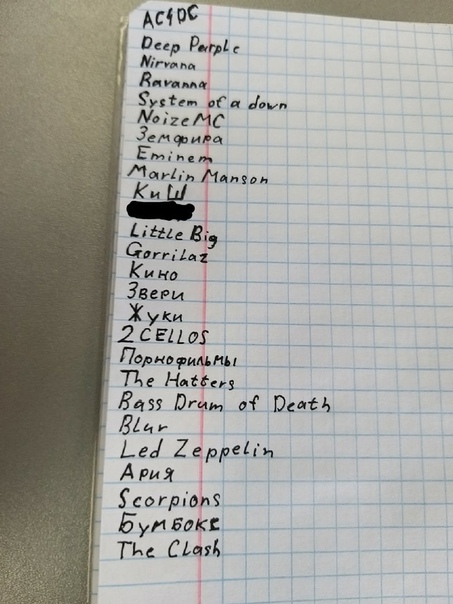 AC⚡DC
Deep Parple
Nirvana
Ravanna
System of a down
Noize MC
Земфира
Eminem
Marlin Manson
КиШ
Little Big
Gorrilaz
Кино
Звери
Жуки
2CELLOS
Порнофильмы
The Hatters
Bass Drum of Death
Blur
Led Zeppelin
Ария
Scorpions
Бумбокс
The Clash